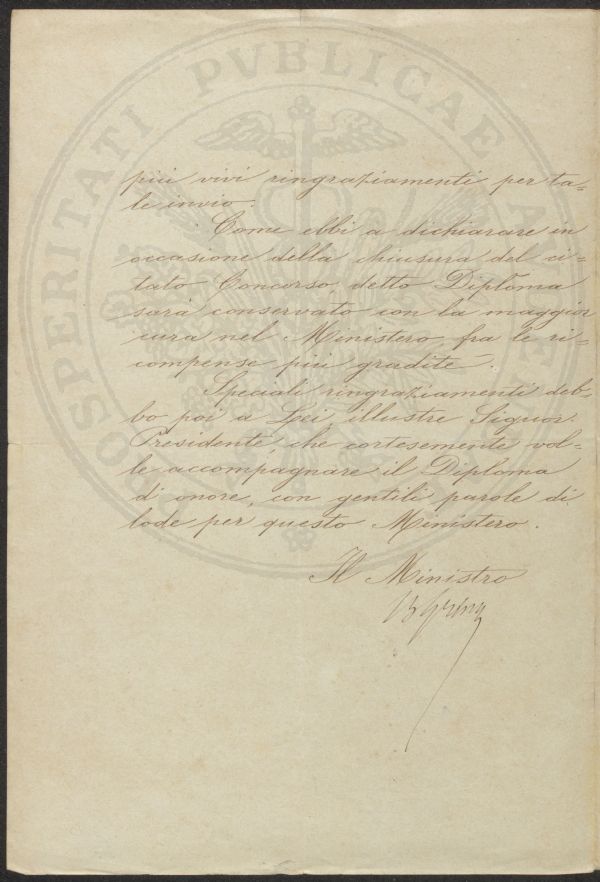 PROSPERITATI PVBLICAE AVGENDAE
più vivi ringraziamenti per ta=
le invio.
Come ebbi a dichiarare in
occasione della chiusura del ci=
tato Concorso detto Diploma
sarà conservato con la maggior
cura nel Ministero, fra le ri=
compense più gradite.
Speciali ringraziamenti deb=
bo poi a Lei, illustre Signor
Presidente, che cortesemente vol=
le accompagnare il Diploma
d'onore, con gentili parole di
lode per questo Ministero.
Il Ministro